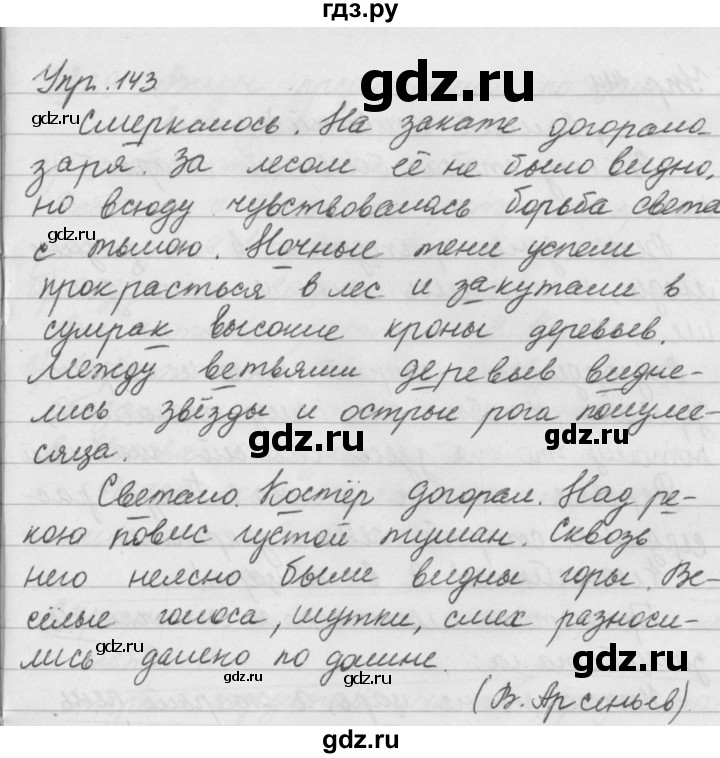 гдз.ру
Упр. 143
gdz.ru
gdz.ru
Смеркалось. На закате догорала
заря. За лесом её не было видно,
но всюду чувствовалась борьба света
gdz.ru
с тьмою. Ночные тени успели
прокрасться в лес и закутали в
сумрак высокие кроны деревьев.
Между ветвями деревьев видне-
лись звёзды и острые рога полуме-
gdz.ru
gdz.ru
сяца.
Светало. Костёр догорал. Над ре-
кою повис густой туман. Сквозь
него неясно были видны горы. Ве-
сёлые голоса, шутки, смех разноси-
gdz.ru
gdz.ru
лись далеко по долине.
gdz.ru
gdz.ru
(В. Арсеньев)
gdz.ru